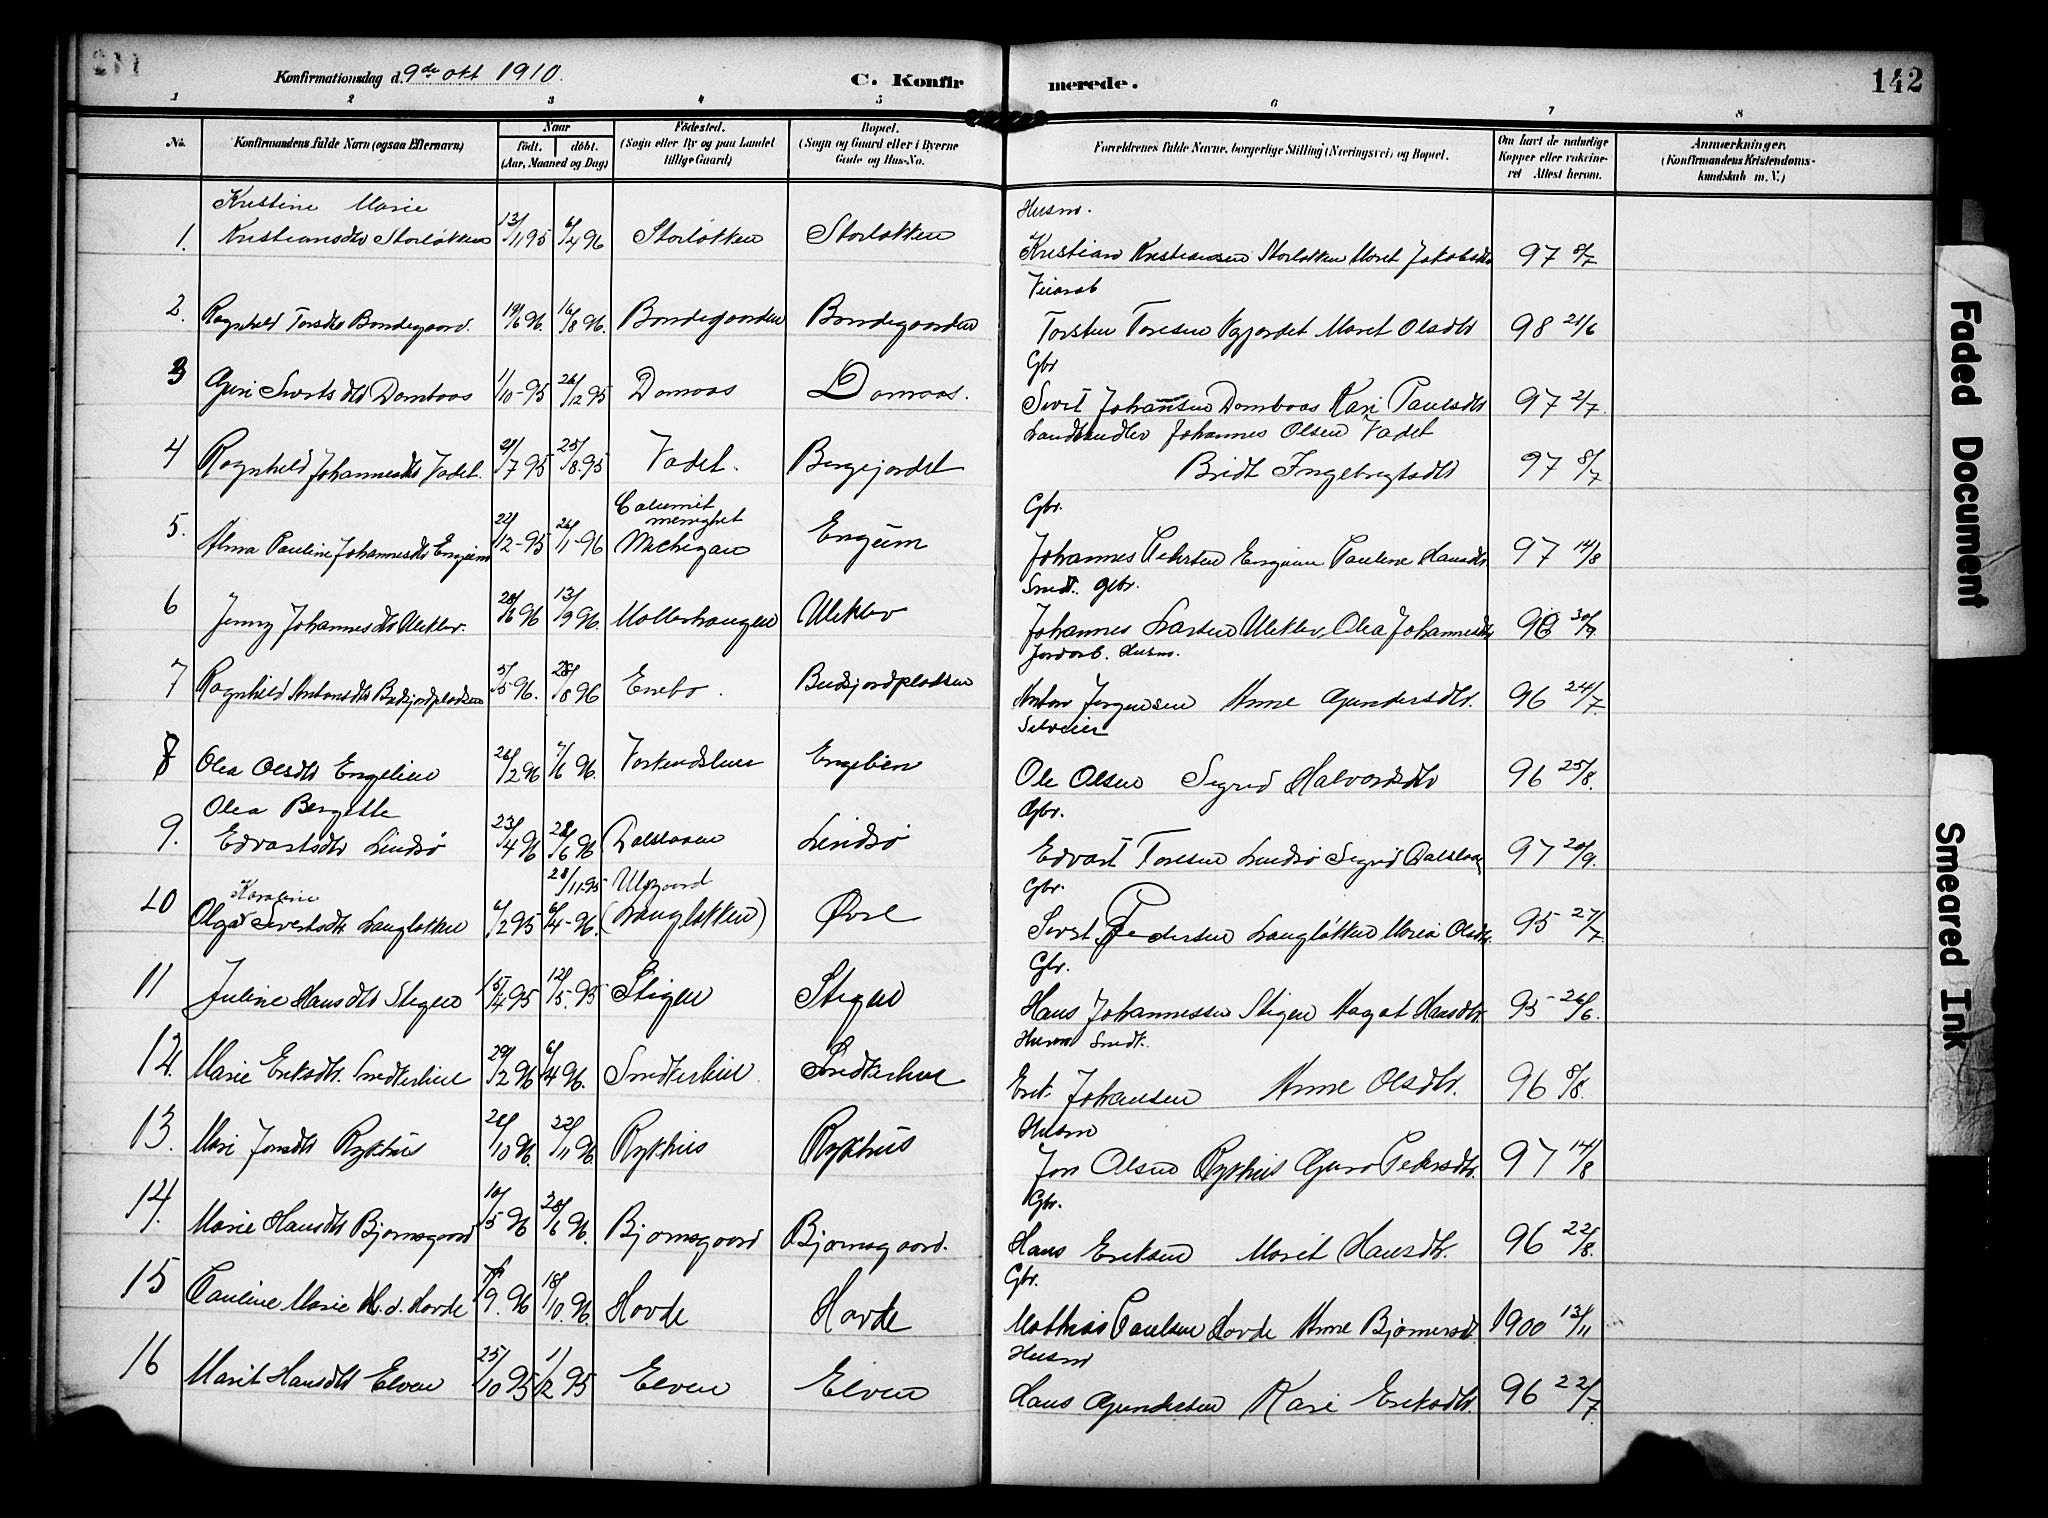 Konfirmationsdag d. 9de okt 1910. C. Konfir merede. 142
1 2 3 4 5 6 7 8
No. Konfirmandens fulde Navn (ogsaa Efternavn) Naar født. døbt. (Aar, Maaned og Dag) Födested. (Sogn eller By og paa Landet tillige Gaard) Bopæl. (Sogn og Gaard eller i Byerne Gade og Hus-No. Forældrenes fulde Navne, borgerlige Stilling (Næringsvei) og Bopæl. Om havt de naturlige Kopper eller vakcineret Attest herom. Anmærkninger. (Konfirmandens Kristendomskundskab m. V.)
Kristine Marie Husm.
1. Kristiansdtr Storløkken 13/11 95 6/4 96 Storløkken Storløkken Kristian Kristiansen Storløkken Marit Jakobsdtr 97 8/7
Veiarb
2. Ragnhild Torsdtr Bondegaard. 19/6 96. 16/8 96. Bondegaarden Bondegaarden Torsten Toresen Marit Olsdtr 98 21/6
Gbr
3 Guri Sivertsdtr Dombaas 1/10-95 26/12 95 Domaas Domaas. Sivert Johansen Dombaas Kari Paulsdtr 97 2/7.
Landhandler Johannes Olsen Vadet
4 Ragnhild Johannesdtr Vadet. 7 95 25/8 95 Vadet. Bergejordet Bridt Ingebrigtsdtr 97 8/7
Calumet menighet Gbr.
5. Alma Pauline Johannesdtr Engum 22/12-95 26/1-96 Michigan Engum Johannes Pedersen Engum Pauline Hansdtr 97 14/8
Smed. Gbr.
6 Jenny Johannesdtr Uleklev. 96 13/9 96. Møllerhaugen Uleklev Johannes Larsen Uleklev, Olea Johannesdtr 96 30/9
Jordarb. Husm.
7 Ragnhild Antonsdtr Budsjordpladsen 5/5 96. 28/8 96 Enebo. Budsjordpladsen Anton Jørgensen Anne Gundersdtr. 96 24/7.
Selveier
8 Olea Olsdtr Engelien 26/2 96 7/6 96. Engelien Ole Olsen Sigrid Halvorsdtr 96 25/8.
Olea Bergitte Gbr.
9. Edvartsdtr Lindsø 23/4 96 28/6 96 Dalslaaen Lindsø Edvart Toresen Lindsø Sigrid Dalslaaen 97 20/9.
Karoline 28/11-95 Ulsgaard Gbr.
10 Olga Sivertsdtr Langløkken 6/2 95 6/4-96. (Langløkken) Øvre Sivert Pedersen Langløkken Maria Olsdtr. 95 27/7.
Gbr.
11 Juline Hansdtr Stigen 15/4 95 12/5-95 Stigen Stigen Hans Johannessen Stigen Magat Hansdtr. 95-26/6.
Husm Smed.
12. Marie Eriksdtr. Smedkerlien 29/2 96 6/4 96. Smedkerlien Smedkerlien Erik Johansen Anne Olsdtr. 96 8/8.
Husm
13. Mari Jonsdtr Rykhus 28/10 96. 22/11 96. Rykhus Rykhus Jon Olsen Rykhus Guro Pedersdtr. 97 14/8
Gbr.
14. Marie Hansdtr Bjørnsgaard 10/5 96 28/6 96. Bjørnsgaard Bjørnsgaard. Hans Eriksen Marit Hansdtr. 96 22/8.
Gbr.
15 Pauline Marie M. d. Hovde 9. 96 18/10. 96. Hovde Hovde Mathias Paulsen Hovde Anne Bjørnersdtr. 1900 13/11
Husm
16 Marit Hansdtr Elven 25/10 95 1/12 95 Elven Elven Hans Gundersen Kari Eriksdtr. 96 22/7.
Faded Document
Smeared Ink